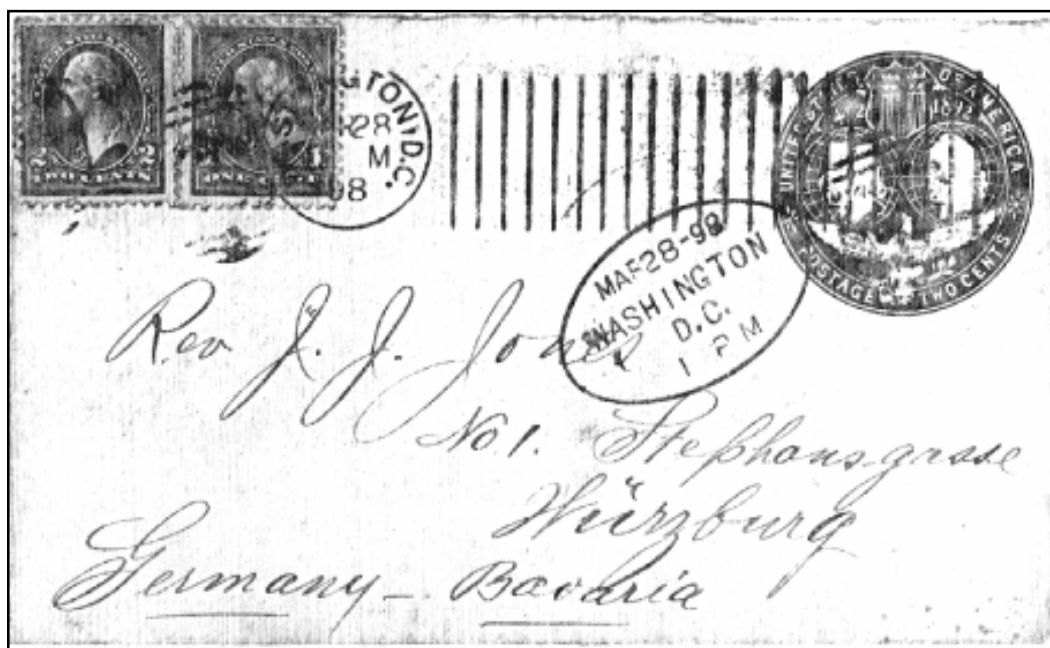 TWO CENTS
TON, D.C.
28
M
98
UNITED STATES OF AMERICA
POSTAGE TWO CENTS
MAR 28-98
WASHINGTON
D.C.
1 PM
Rev J. J. Jones
No 1. Stephans-gasse
Würzburg
Germany - Bavaria